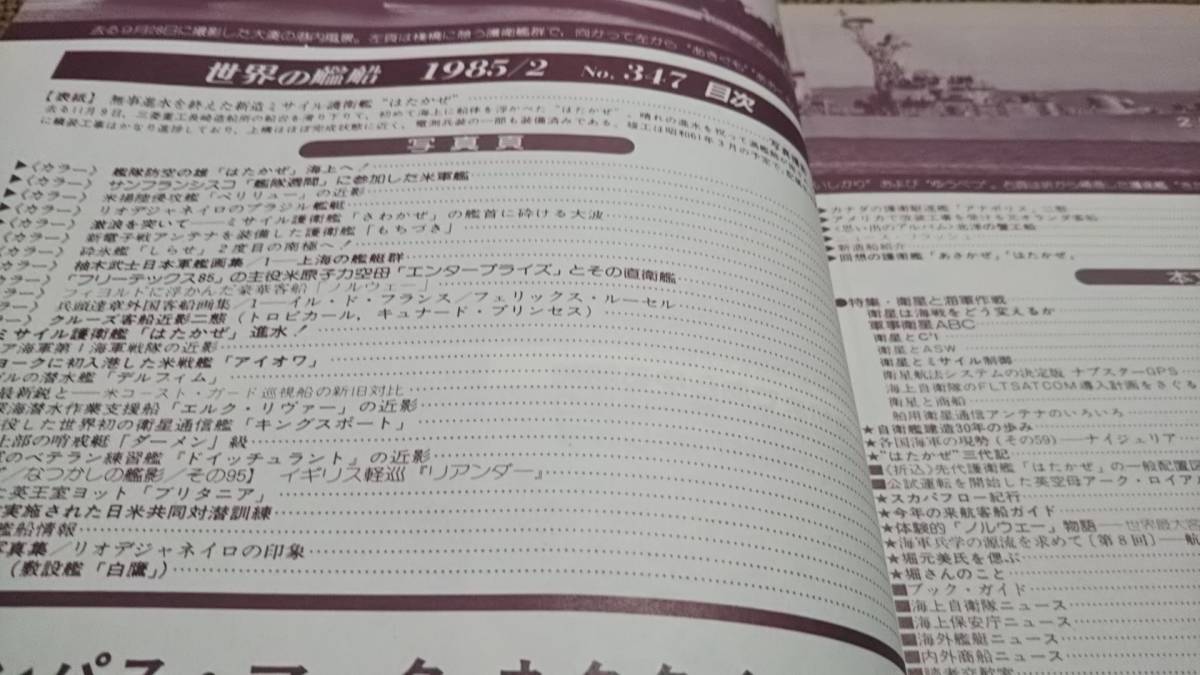 去る9月28日に撮影した大湊の港内風景。左頁は桟橋に憩う護衛艦群で，向かって左から"あきぐも"
世界の艦船 1985/2 No. 347 目次
【表紙】 無事進水を終えた新造ミサイル護衛艦"はたかぜ"
去る11月9日，三菱重工長崎造船所の船台を滑り下りて，初めて海上に船体を浮かべた"はたかぜ"。晴れの進水を祝って満艦飾が
に艤装工事はかなり進捗しており，上構はほぼ完成状態に近く，電測兵装の一部も装備済みである。竣工は昭和61年3月の予定で，
写真頁
▶〈カラー〉 艦隊防空の雄「はたかぜ」海上へ！
▶〈カラー〉 サンフランシスコ「艦隊週間」に参加した米軍艦
▶〈カラー〉 米揚陸侵攻艦「ペリリュー」の近影
▶〈カラー〉 リオデジャネイロのブラジル艦艇
〈カラー〉 激浪を突いて——ミサイル護衛艦「さわかぜ」の艦首に砕ける大波
〈カラー〉 新電子戦アンテナを装備した護衛艦「もちづき」
〈カラー〉 砕氷艦「しらせ」2度目の南極へ！
カラー〉 柚木武士日本軍艦画集/1—上海の艦艇群
カラー〉 「フリーテックス85」の主役米原子力空母「エンタープライズ」とその直衛艦
ラー〉 フィヨルドに浮かんだ豪華客船「ノルウェー」
ラー〉 兵頭達章外国客船画集/1—イル・ド・フランス/フェリックス・ルーセル
ー〉 クルーズ客船近影二態（トロピカール，キュナード・プリンセス）
ミサイル護衛艦「はたかぜ」進水！
ア海軍第1海軍戦隊の近影
ヨークに初入港した米戦艦「アイオワ」
ルの潜水艦「デルフィム」
最新鋭と——米コースト・ガード巡視船の新旧対比
深海潜水作業支援船「エルク・リヴァー」の近影
役した世界初の衛星通信艦「キングスポート」
上部の哨戒艇「ダーメン」級
のベテラン練習艦『ドイッチュラント』の近影
/なつかしの艦影/その95】 イギリス軽巡『リアンダー』
英王室ヨット「ブリタニア」
実施された日米共同対潜訓練
艦船情報
写真集/リオデジャネイロの印象
（敷設艦「白鷹」）
▶カナダの護衛駆逐艦「アナポリス」三態
▶アメリカで改装工事を受ける元オランダ客船
▶〈思い出のアルバム〉北洋の蟹工船
▶新造船紹介
▶回想の護衛艦「あさかぜ」「はたかぜ」
本
●特集・衛星と海軍作戦
衛星は海戦をどう変えるか
軍事衛星ABC
衛星とC³I
衛星とASW
衛星とミサイル制御
衛星航法システムの決定版 ナブスターGPS
海上自衛隊のFLTSATCOM導入計画をさぐる
衛星と商船
舶用衛星通信アンテナのいろいろ
★自衛艦建造30年の歩み
★各国海軍の現勢（その59）——ナイジェリア
★"はたかぜ"三代記
■〈折込〉先代護衛艦「はたかぜ」の一般配置図
■公試運転を開始した英空母アーク・ロイアル
★スカパフロー紀行
★今年の来航客船ガイド
★体験的「ノルウェー」物語——世界最大
★海軍兵学の源流を求めて〔第8回〕——航
★堀元美氏を偲ぶ
★堀さんのこと
■ブック・ガイド
■海上自衛隊ニュース
■海上保安庁ニュース
■海外艦艇ニュース
■内外商船ニュース
■読者交歓室